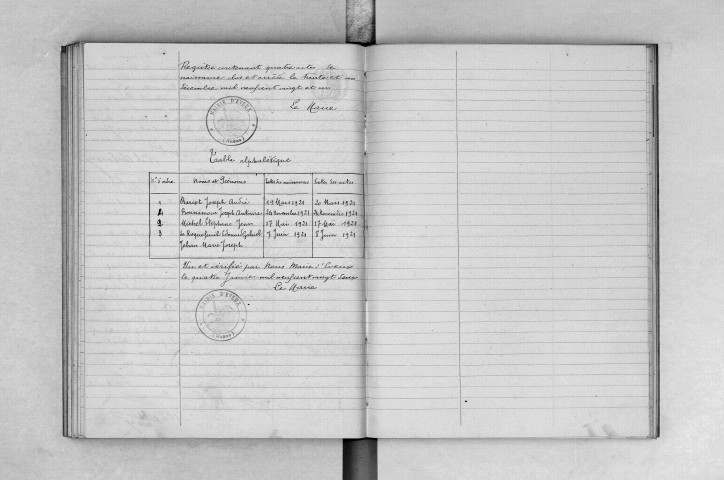 Registre contenant quatre actes de
naissance clos et arrêté le trente et un
Décembre mil neuf cent vingt et un
Le Maire
MAIRIE D'EVEUX
(RHÔNE)
Table alphabétique
N° d'ordre Noms et Prénoms Dates des naissances Dates des actes
1 Joseph André 19 Mars 1921 20 Mars 1921
4 Bonnamour Joseph Antoine 24 Novembre 1921 Novembre 1921
2 Michel Stéphane Jean 17 Mai 1921 17 Mai 1921
3 de Roquefeuil Edouard Gabriel 7 Juin 1921 8 Juin 1921
Jehan Marie Joseph
Vu et vérifié par Nous Maire d'Eveux
le quatre Janvier mil neuf cent vingt deux
Le Maire
MAIRIE D'EVEUX
(RHÔNE)